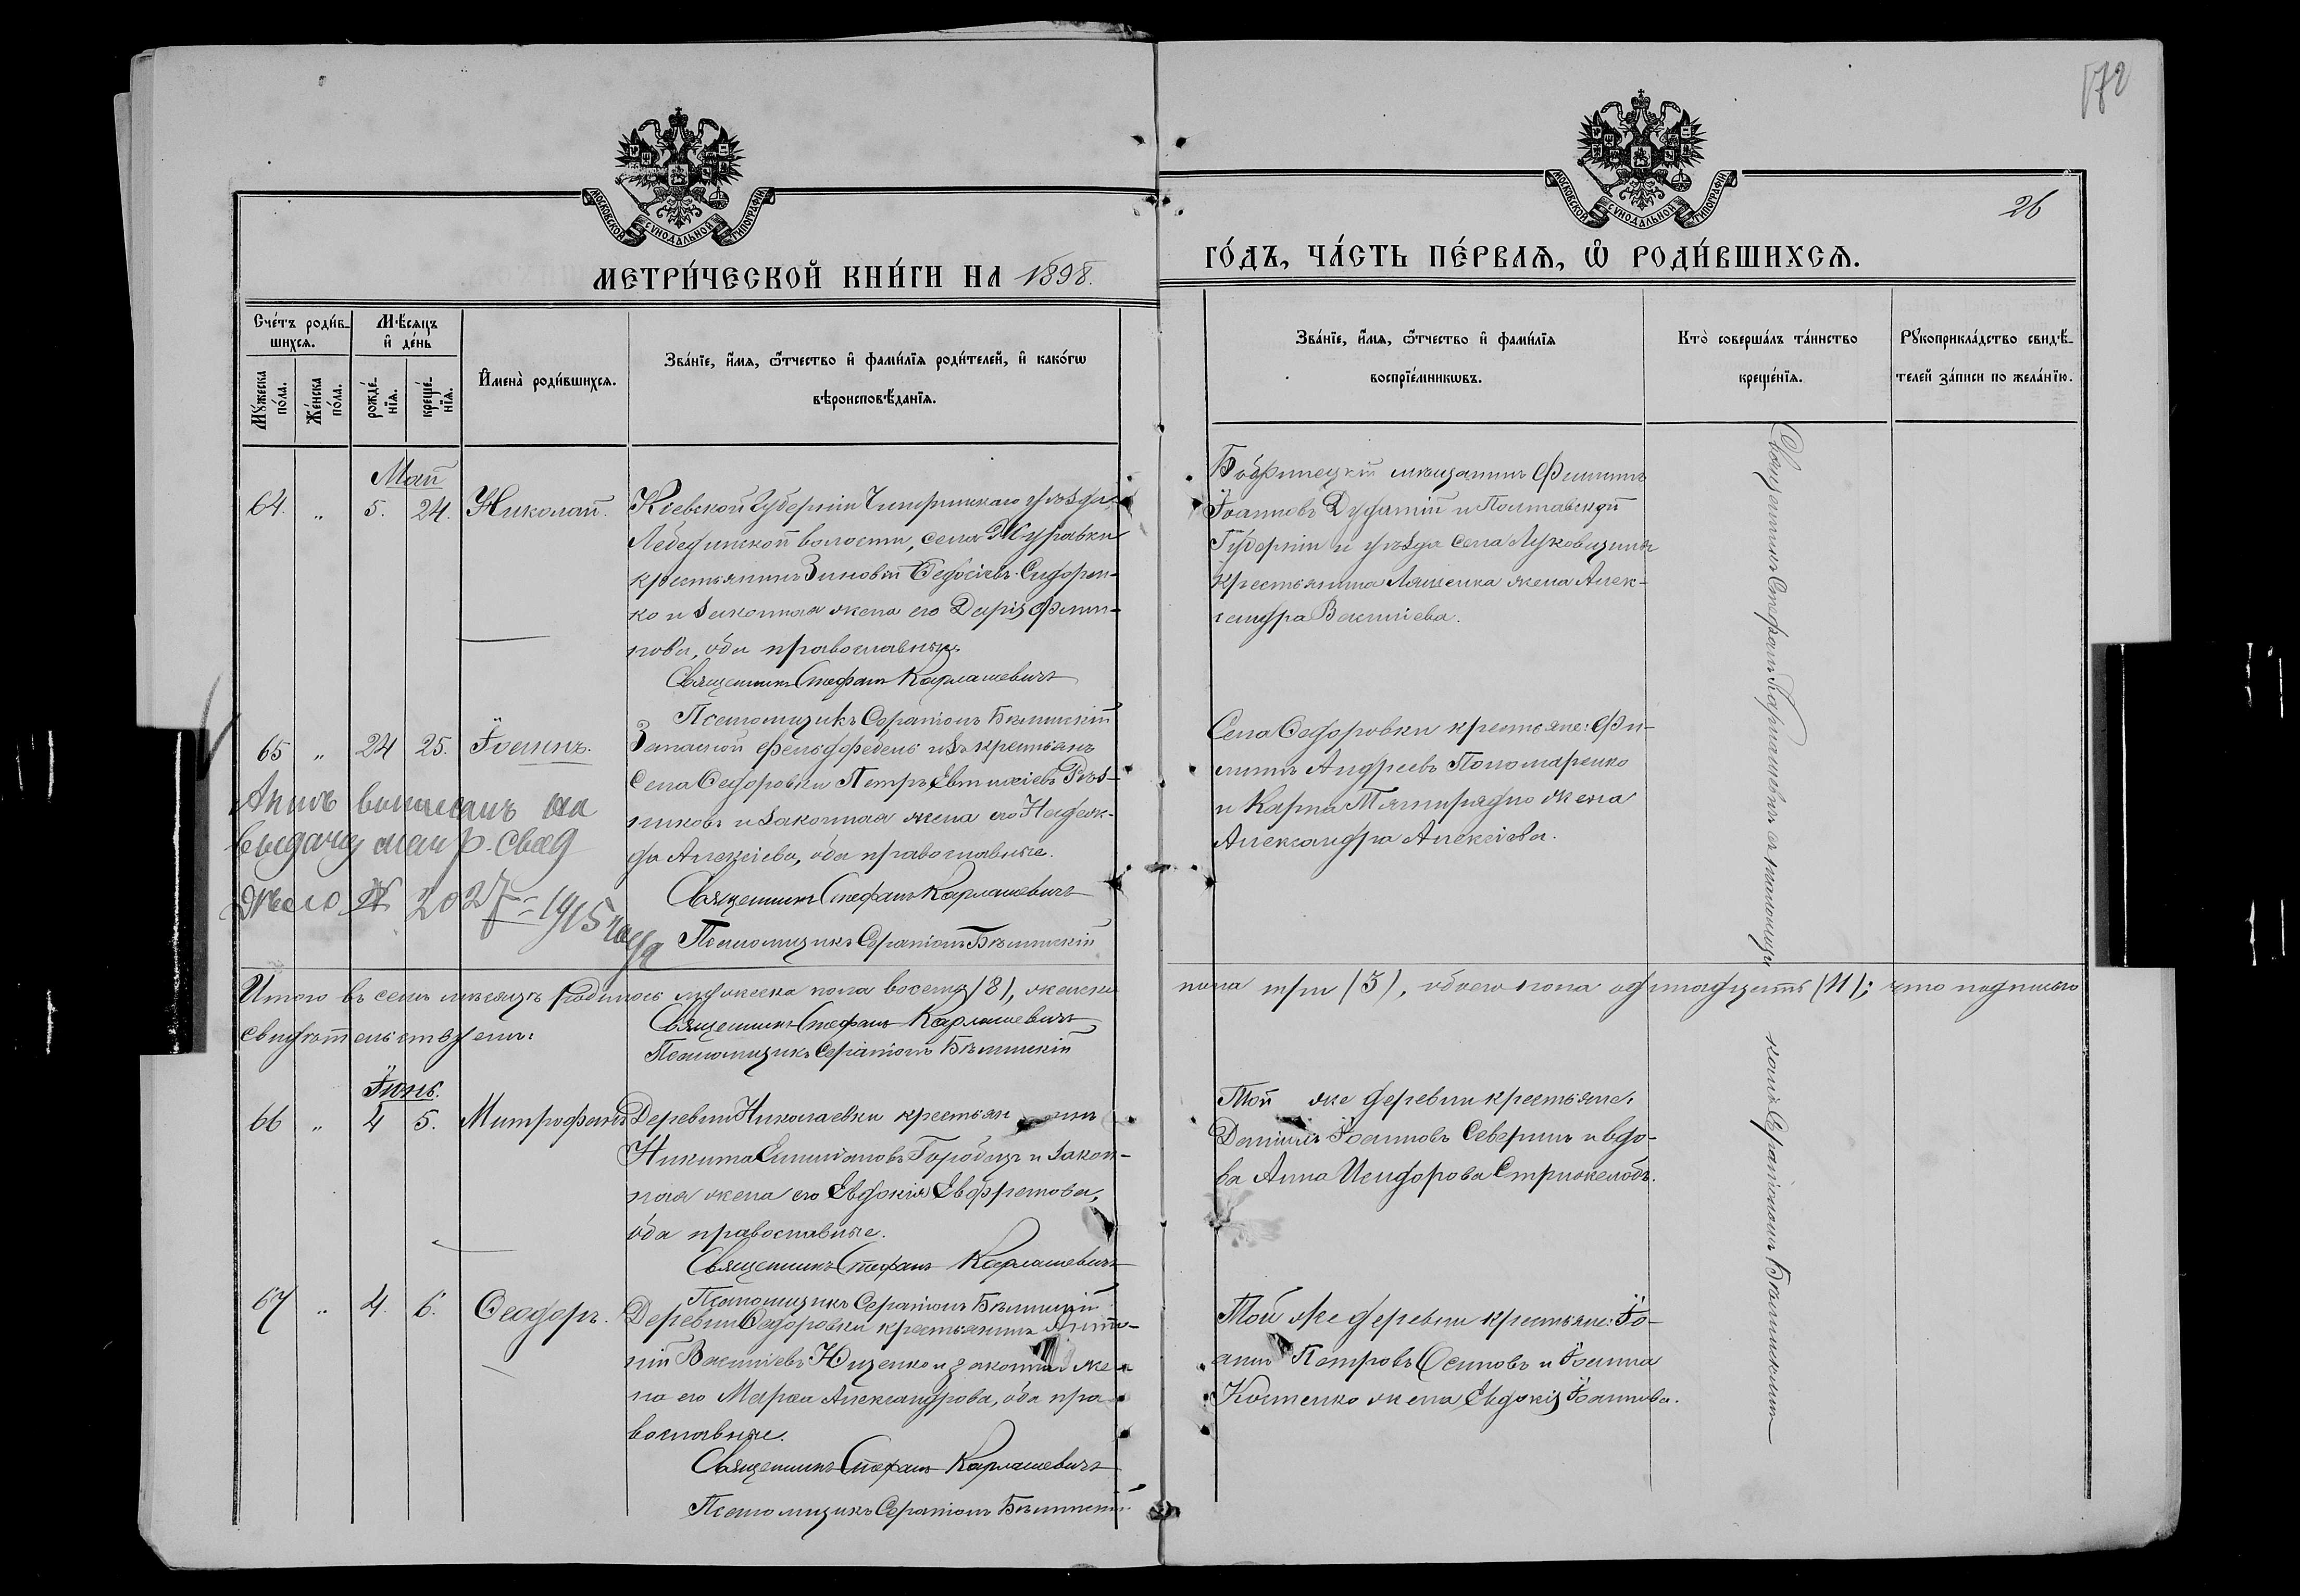 172
26
МОСКОВСКОЙ СѴНОДАЛЬНОЙ ТИПОГРАФІИ
МОСКОВСКОЙ СѴНОДАЛЬНОЙ ТИПОГРАФІИ
МЕТРИ́ЧЕСКОЙ КНИ́ГИ НА 1898.
ГО́ДЪ, ЧА́СТЬ ПЕ́РВАѦ, Ѽ РОДИ́ВШИХСѦ.
Сче́тъ роди́в-
шихсѧ.
Мꙋ́жеска
по́ла.
Же́нска
по́ла.
Мѣ́сѧцъ
и҆ де́нь
рожде́-
нїѧ.
креще́-
нїѧ.
И҆мена̀ роди́вшихсѧ.
Зва́нїе, и҆́мѧ, ѻ҆́тчество и҆ фами́лїѧ роди́телей, и҆ како́гѡ
вѣроисповѣ́данїѧ.
Зва́нїе, и҆́мѧ, ѻ҆́тчество и҆ фами́лїѧ
воспрїе́мникѡвъ.
Кто̀ соверша́лъ та́инство
креще́нїѧ.
Рꙋкоприкла́дство свидѣ́-
телей за́писи по жела́нїю.
Май
64. „ 5. 24. Николай.
Кіевской Губерніи Чигиринскаго уѣзда,
Лебединской волости, села Журавки
крестьянинъ Зиновій Ѳедосіевъ Сидорен-
ко и законная жена его Дарія Филип-
пова, оба православные.
Священникъ Стефанъ Карпашевичъ
Псаломщикъ Серапіонъ Бѣлинскій
Бобринецкій мѣщанинъ Филиппъ
Іоанновъ и Полтавской
Губерніи и уѣзда села
крестьянина Ляшенка жена Алек-
сандра Василіева.
65 „ 24 25. Іоаннъ.
Запасной фельдфебель изъ крестьянъ
села Ѳедоровки Петръ Евтихіевъ Рѣз-
никовъ и законная жена его Надеж-
да Алексіева, оба православные.
Священникъ Стефанъ Карпашевичъ
Псаломщикъ Серапіонъ Бѣлинскій
Села Ѳедоровки крестьяне: Фи-
липпъ Андреевъ Пономаренко
и Карпа жена
Александра Алексіева.
Актъ выписанъ на
выдачу метр. свид
дѣло № 2027 = 1915 года
Итого въ семъ мѣсяцѣ родилось мужеска пола восемь (8), женска
пола три (3), обоего пола одинадцать (11); что подписью
свидѣтельствуемъ:
Священникъ Стефанъ Карпашевичъ
Псаломщикъ Серапіонъ Бѣлинскій
Іюнь.
66 „ 4 5. Митрофанъ
Деревни Николаевки крестьянинъ
Никита Епифановъ Городецъ и закон-
ная жена его Евдокія
оба православные.
Священникъ Стефанъ Карпашевичъ
Псаломщикъ Серапіонъ Бѣлинскій
Той же деревни крестьяне:
Даніилъ Іоанновъ Северинъ и вдо-
ва Анна Исидорова
67 „ 4. 6. Ѳеодоръ.
Деревни Ѳедоровки крестьянинъ Анто-
ній Васильевъ Ященко и законная же-
на его Марѳа Александрова, оба пра-
вославные.
Священникъ Стефанъ Карпашевичъ
Псаломщикъ Серапіонъ Бѣлинскій
Той же деревни крестьяне: Іо-
аннъ Петровъ Осиповъ и Іоанна
Костенко жена Евдокія Іоаннова.
Священникъ Стефанъ Карпашевичъ съ псаломщи
комъ Серапіономъ Бѣлинскимъ